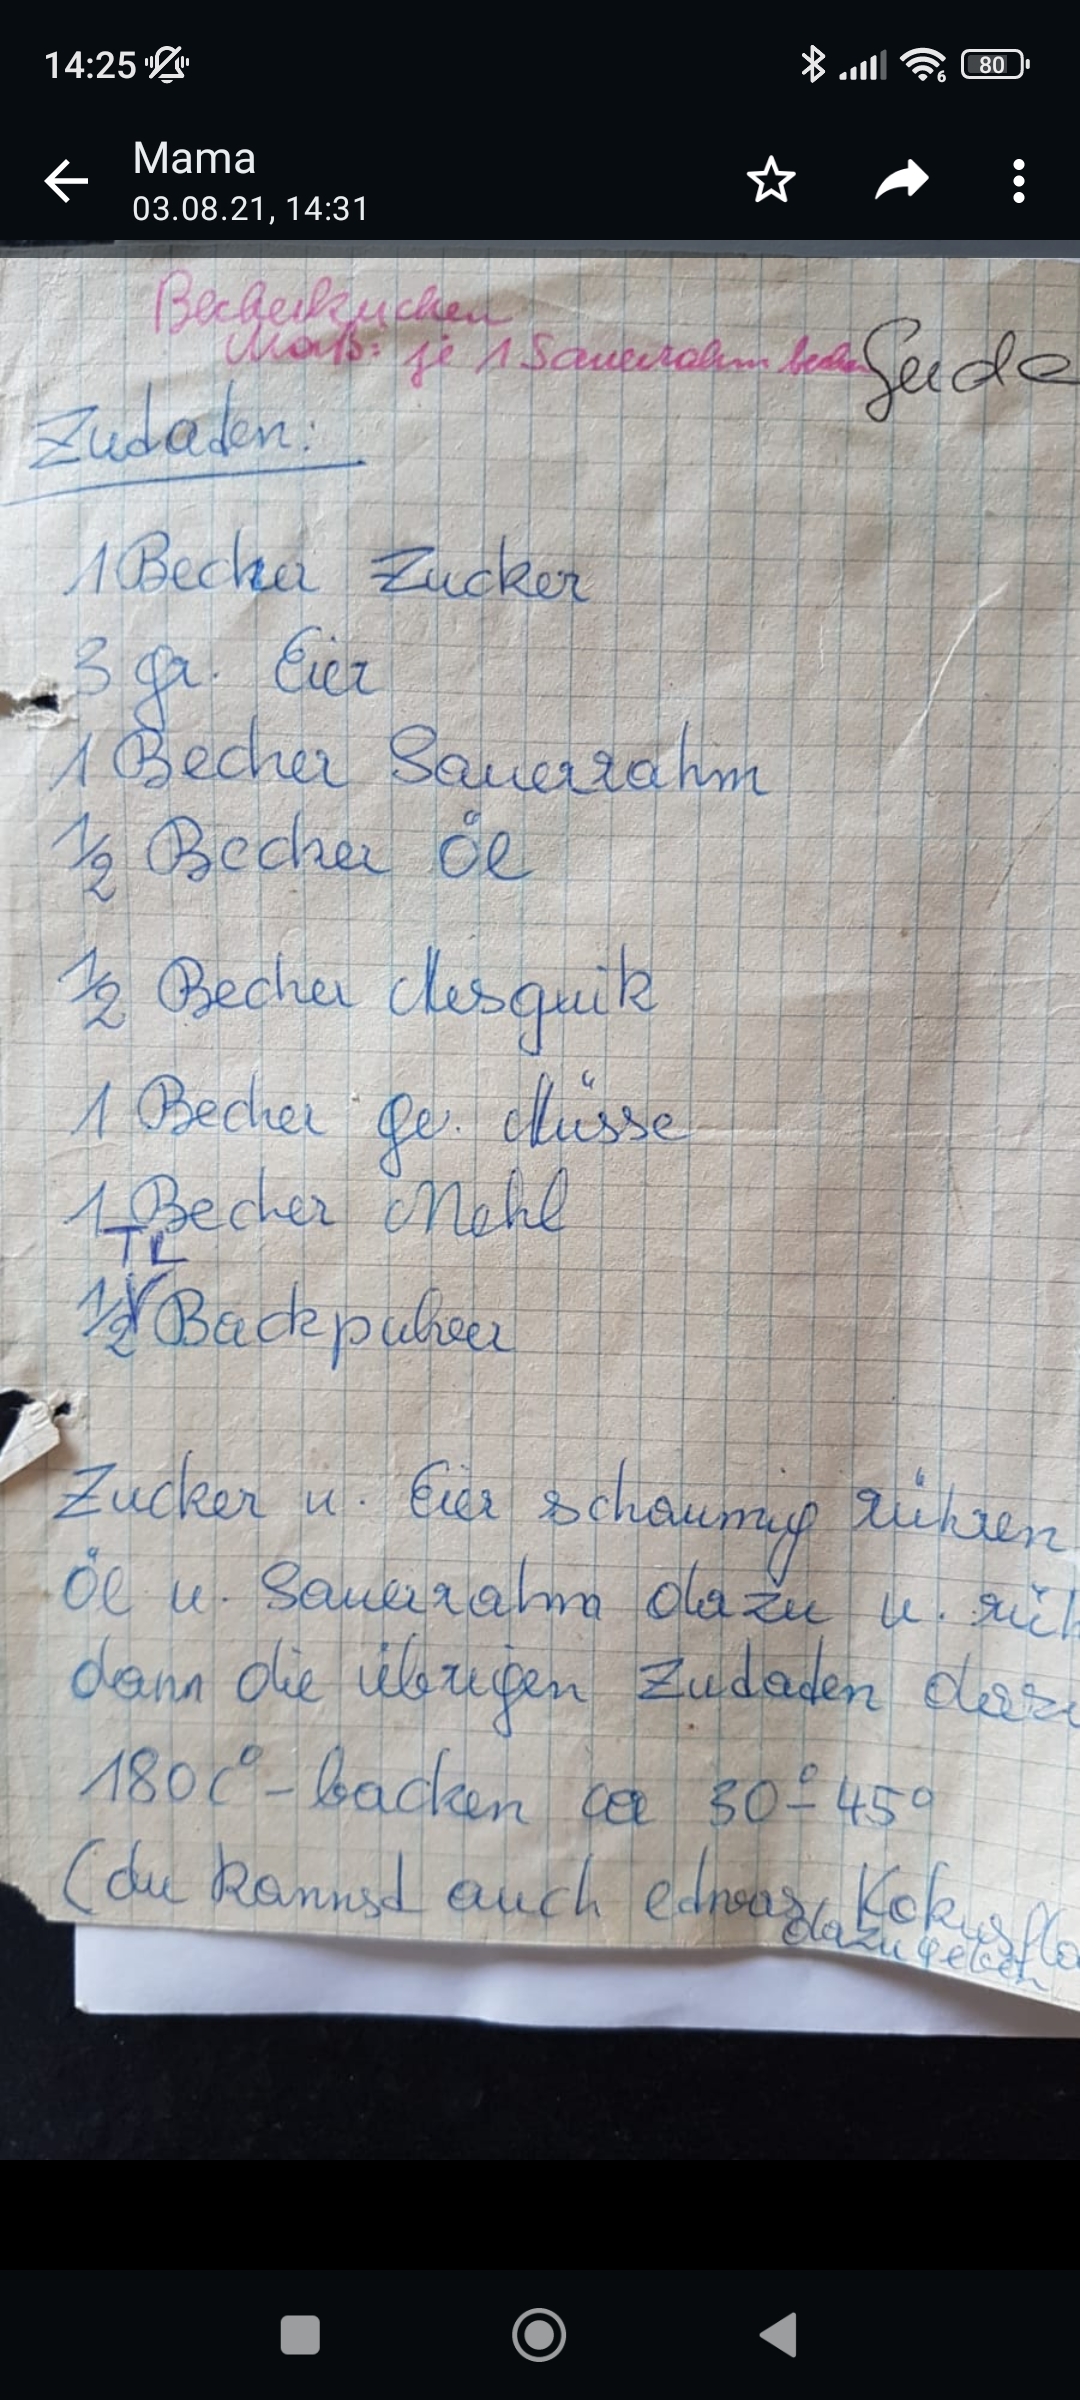 14:25
80
Mama
03.08.21, 14:31
Becherkuchen
Maß: je 1 Sauerrahm becher
Zudaden:
1 Becher Zucker
3 gr. Eier
1 Becher Sauerrahm
1/2 Becher Öl
1/2 Becher Nesquik
1 Becher ge. Nüsse
1 Becher Mehl
TL
1/2 Backpulver
Zucker u. Eier schaumig rühren
Öl u. Sauerrahm dazu u. rüh
dann die übrigen Zudaden dazu
180C° - backen ca 30°-45°
(du kannsd auch edwas Kokusflo
dazu geben